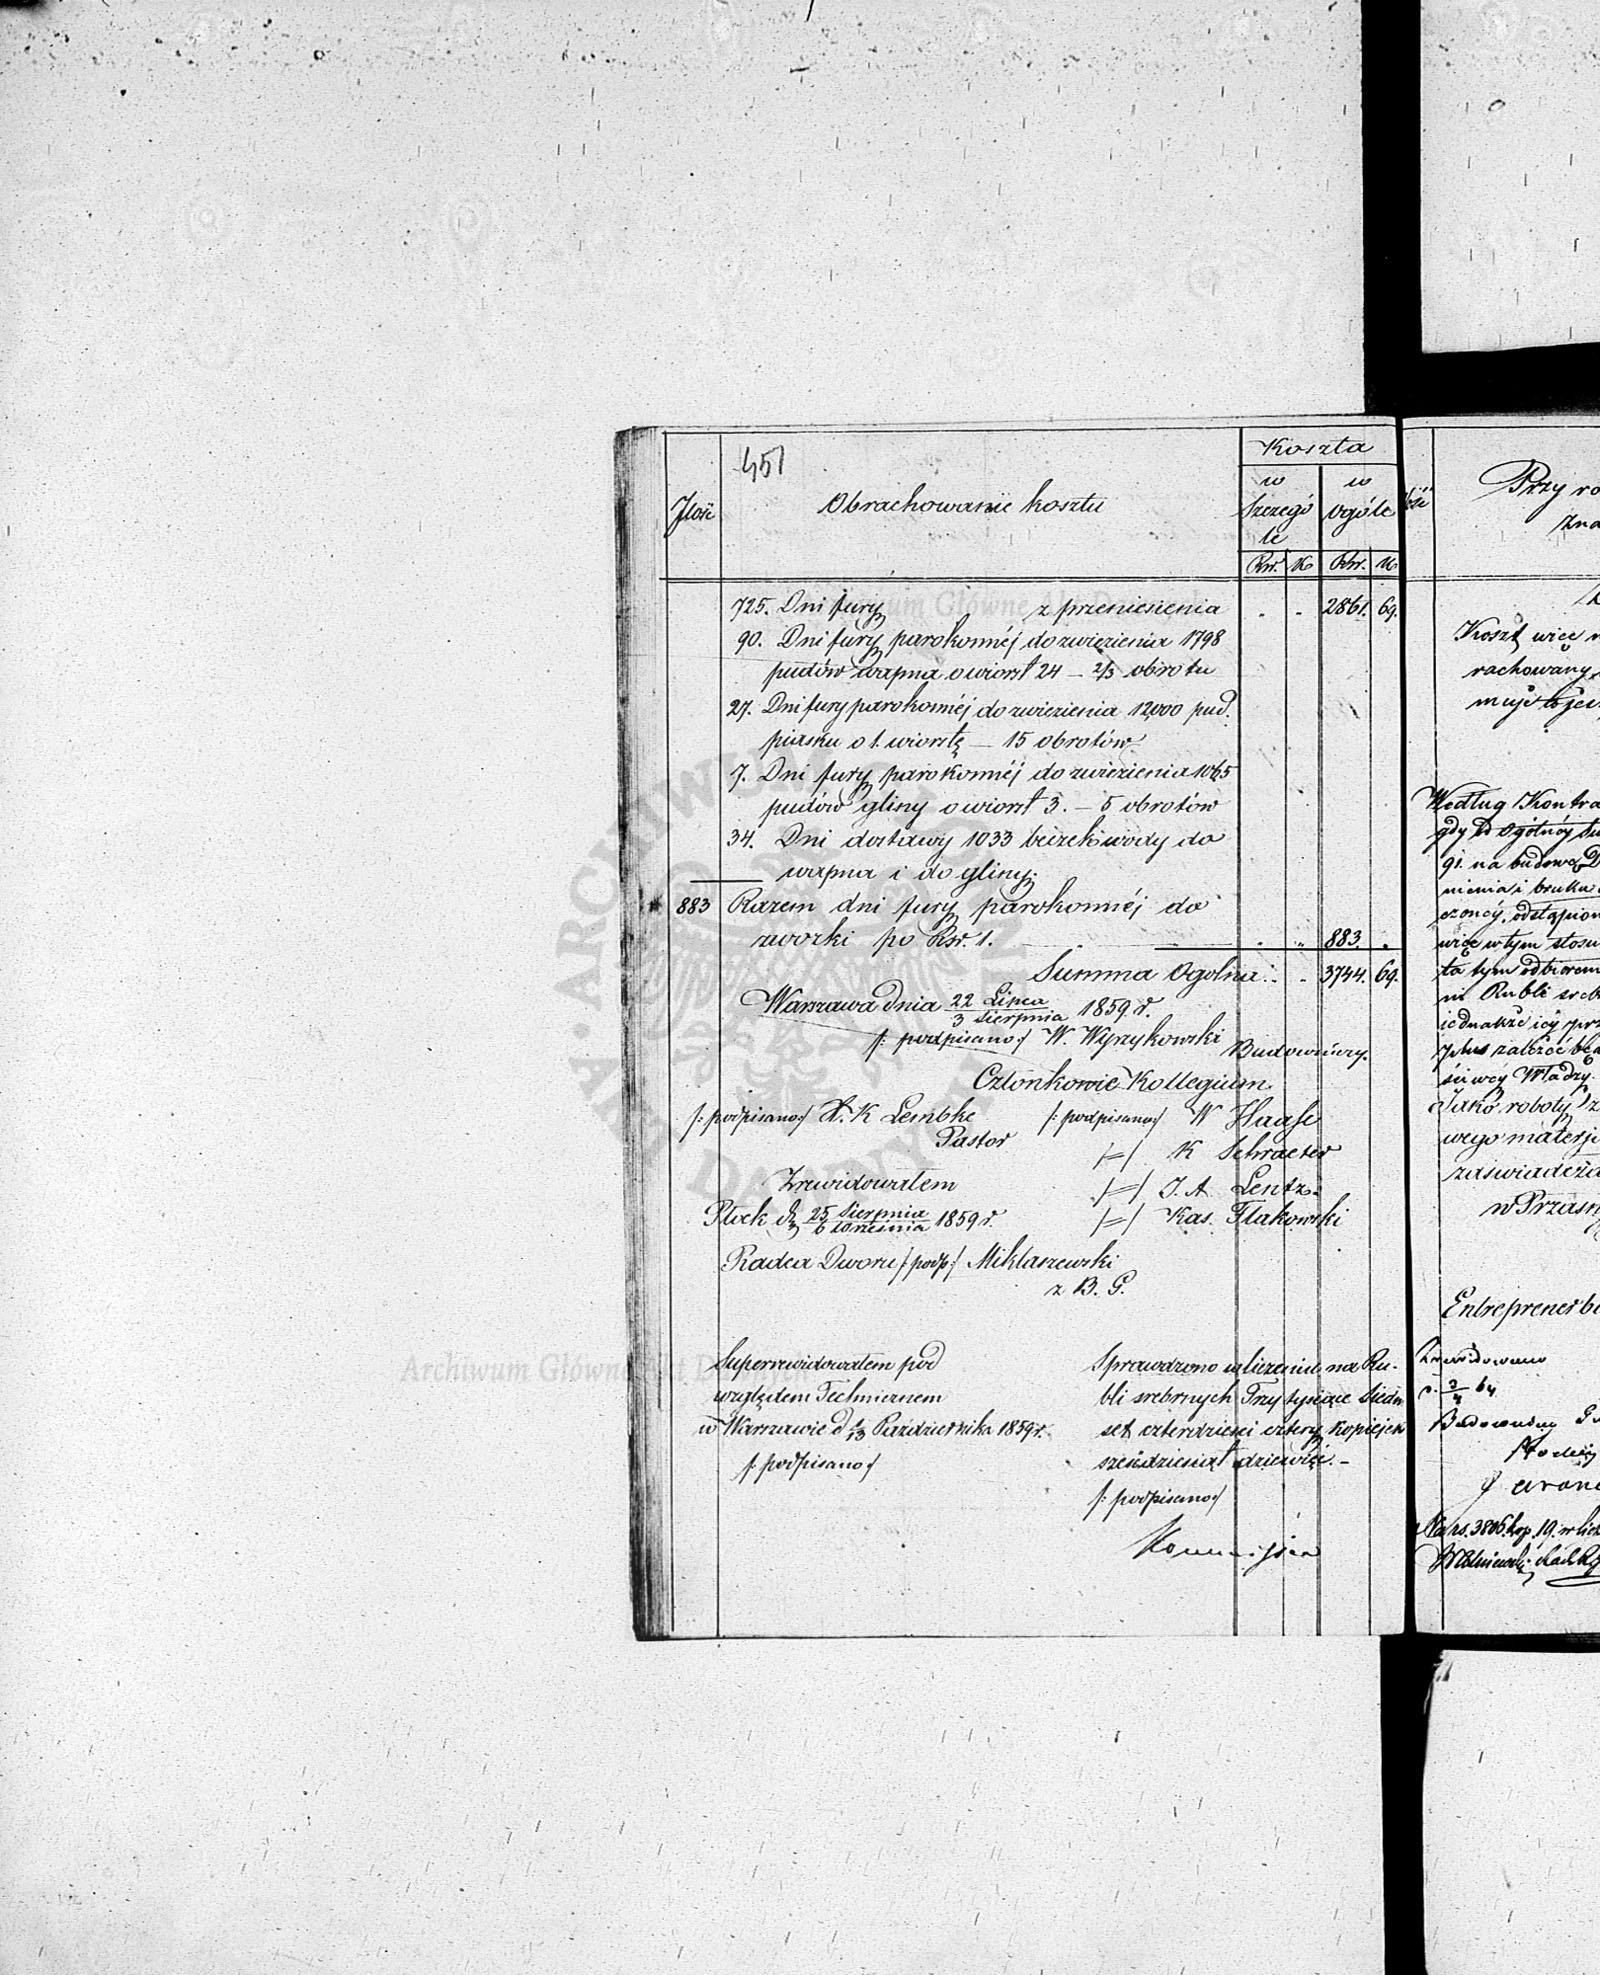 451
Koszta
Ilość
Obrachowanie kosztu
w Szczególe
w Ogóle
Rsr. K Rsr. K
725. Dni fury z przeniesienia " " 2861. 69.
90. Dni fury parokonnéj do zwiezienia 1798
pudów wapna o wiorst 24 – 2/3 obrotu
27. Dni fury parokonnéj do zwiezienia 12000 pud.
piasku o 1. wiorstę – 15 obrotów
7. Dni fury parokonnéj do zwiezienia 1065
pudów gliny o wiorst 3. – 5 obrotów
34. Dni dostawy 1033 beczek wody do
wapna i do gliny.
883 Razem dni fury parokonnéj do
zwózki po Rsr. 1. " " 883. "
Summa Ogolna: " " 3744. 69.
Warszawa dnia 22 Lipca / 3 Sierpnia 1859 r.
/: podpisano :/ W. Wyrzykowski
Budowniczy.
Członkowie Kollegium
/: podpisano :/ K Lembke /: podpisano :/ W Haase
Pastor /=/ K Schraeter
Zrewidowałem /=/ J. A. Lentz.
Płock d. 25 Sierpnia / 6 Września 1859 r. /=/ Kas. Flakowski
Radca Dworu /: podp :/ Miklaszewski
z B. G.
Superrewidowałem pod
względem Technicznem
w Warszawie d 1/13 Października 1859 r.
/: podpisano :/
Sprawdzono w liczeniu na Ru-
bli srebrnych Trzy tysiące siedm
set czterdzieści cztery kopiejek
sześćdziesiąt dziewięć. –
/: podpisano :/
Przy ro
zna
Koszt więc
rachowany
muje to jes
Według Kontra
gdy od ogólnéj Su
gi. na budowę D
nienia i bruku
czonéj, odstąpion
więc w tym stosu
ta tym odbiorem
m Rubli sreb
iednakże iéy prz
plus zależéć bę
ściwéy Władzy.
Jako roboty z
wego materji
zaświadcza
w Przasn
Entreprener b
Zrewidowano
3/4 64
Budowniczy
Na rs. 3806 kop. 19. w licz
Archiwum Główne Akt Dawnych